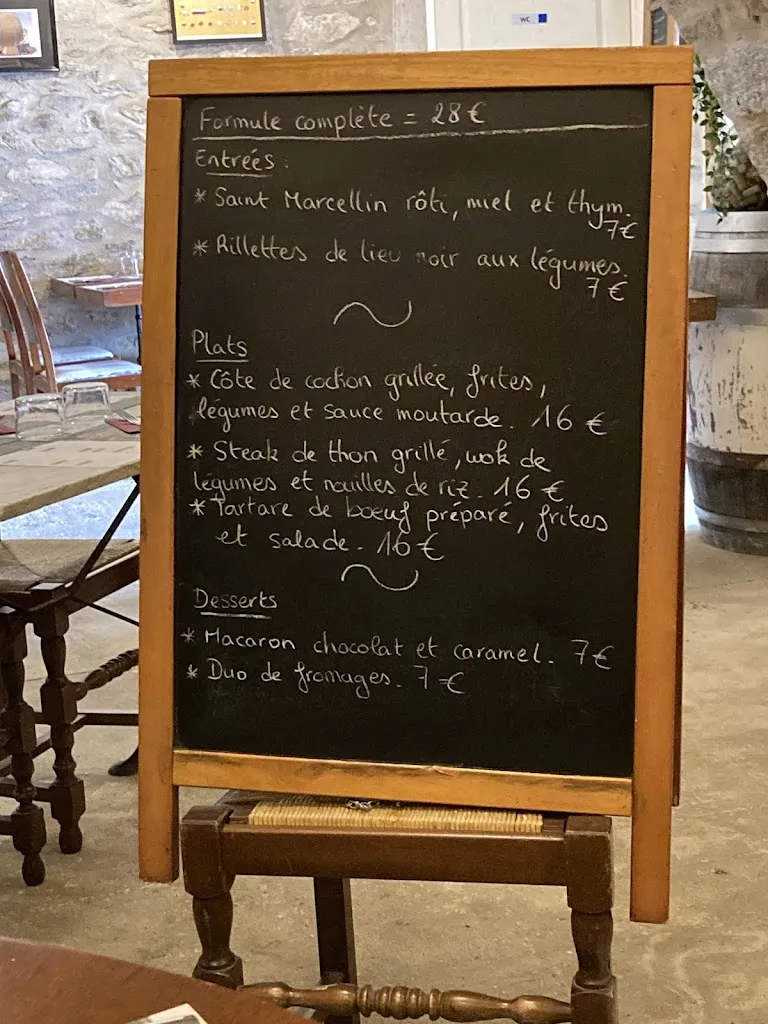 WC
Formule complète = 28 €
Entrées :
* Saint Marcellin rôti, miel et thym.
7€
* Rillettes de lieu noir aux légumes.
7 €
Plats
* Côte de cochon grillée, frites,
légumes et sauce moutarde. 16 €
* Steak de thon grillé, wok de
légumes et nouilles de riz. 16 €
* Tartare de boeuf préparé, frites
et salade. 16 €
Desserts
* Macaron chocolat et caramel. 7€
* Duo de fromages. 7 €